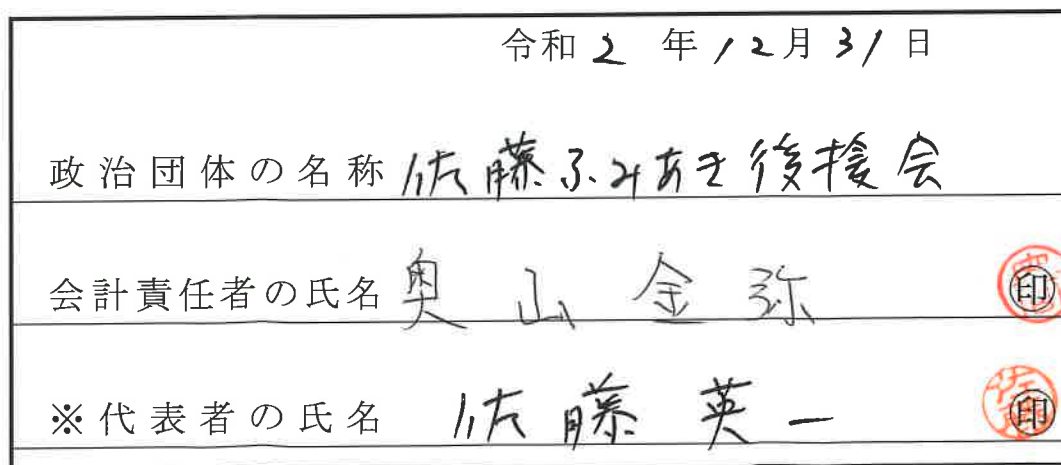 令和2年12月31日
政治団体の名称 佐藤ふみあき後援会
会計責任者の氏名 奥山金弥 印
※代表者の氏名 佐藤英一 印